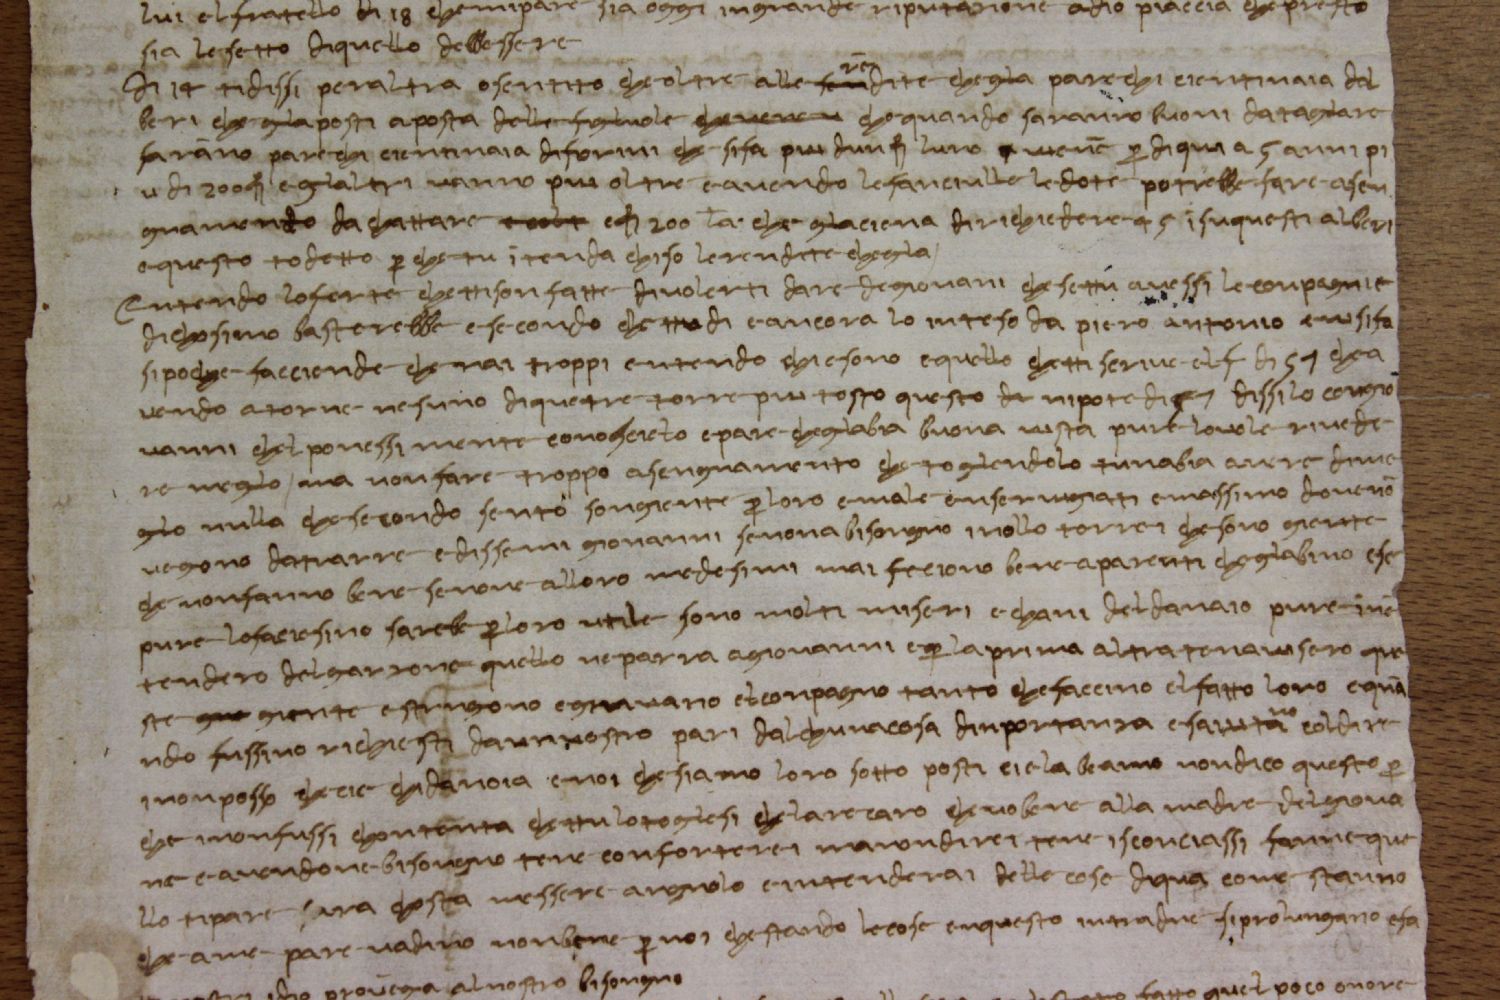 lui el fratello di 18 che mi pare sia oggi in grande riputazione a dio piaccia che presto
sia le setto di quello dellessere
Di 14 ti dissi per altra o sentito che oltre alle rendite chegla parechi cientinaia dal
beri chegla posti a posta delle figluole che quando saranno buoni da tagliare
saranno parechi cientinaia di fiorini che si fa piu dun f luno per di qui a 5 anni pi
u di 200 f e glaltri vanno piu oltre e avendo le fanciulle le dote potrebbe fare asen
gnamendo da chattare f 200 la che glaciena di richiedere 45 isu questi alberi
e questo to detto per che tu itenda chi so le rendite chegla
Entendo loferte chettison fatte di volerti dare de giovani che settu avessi le conpagnie
di chosimo basterebbe e secondo che tudi e ancora lo inteso da piero antonio e
si poche facciende che mai troppi e ntendo chi e sono e quello chetti scrive el f di 57 che a
vendo a torne nesuno di que tre torre piu tosto questo nipote di 57 dissilo con gio
vanni chel ponessi mente conoscielo e pare chegl abia buona vista pure lo vole rivede
re meglo ma non fare troppo asengnamento che togliendolo tu nabia avere di me
glo nulla che secondo sento son giente per loro e male e massimo dove no
vegono da trarre e dissemi giovanni se non a bisongno inollo torrei che sono giente
che non fanno bene se none alloro medesimi mai feciono bene a parenti chegl abino e se
pure lo faciesino sarebe per loro utile sono molti miseri e chani del danaio pure ine
tendero del garzone quello ne parra a giovanni e per la prima altra tenaviserò que
ste giente e stringono e el conpagno tanto che faccino el fatto loro e qua
ndo fussino richiesti da un nostro pari dalchuna cosa dinportanza e col dire
i non posso che cie chi da noia e noi che siamo loro sotto posti cie la beamo non dico questo per
che i non fussi chontenta chettu lo togliesi che larecaro che vo bene alla madre del giova
ne e avendone bisongno tene conforterei ma non direi tene isconciassi fanne que
llo ti pare sara chosta messere angnolo e intenderai delle cose di qua come stanno
che a me pare vadino non bene per noi che stando le cose en questo intradue si prolungano e fa
idio provegia al nostro bisongno
fatto quel poco onore